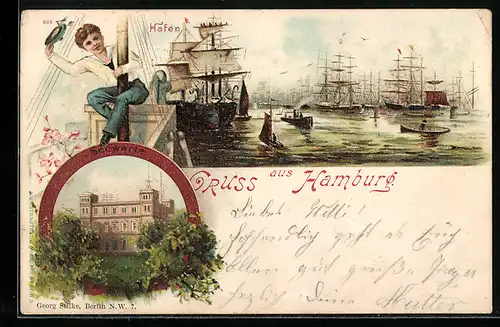 606
Hafen
Seewarte
GRUSS aus Hamburg.
Liebes Willi!
hoffendlich geht es Euch
allen gut grüße
herzlich Deine Mutter
Georg Stilke, Berlin N.W. 7.